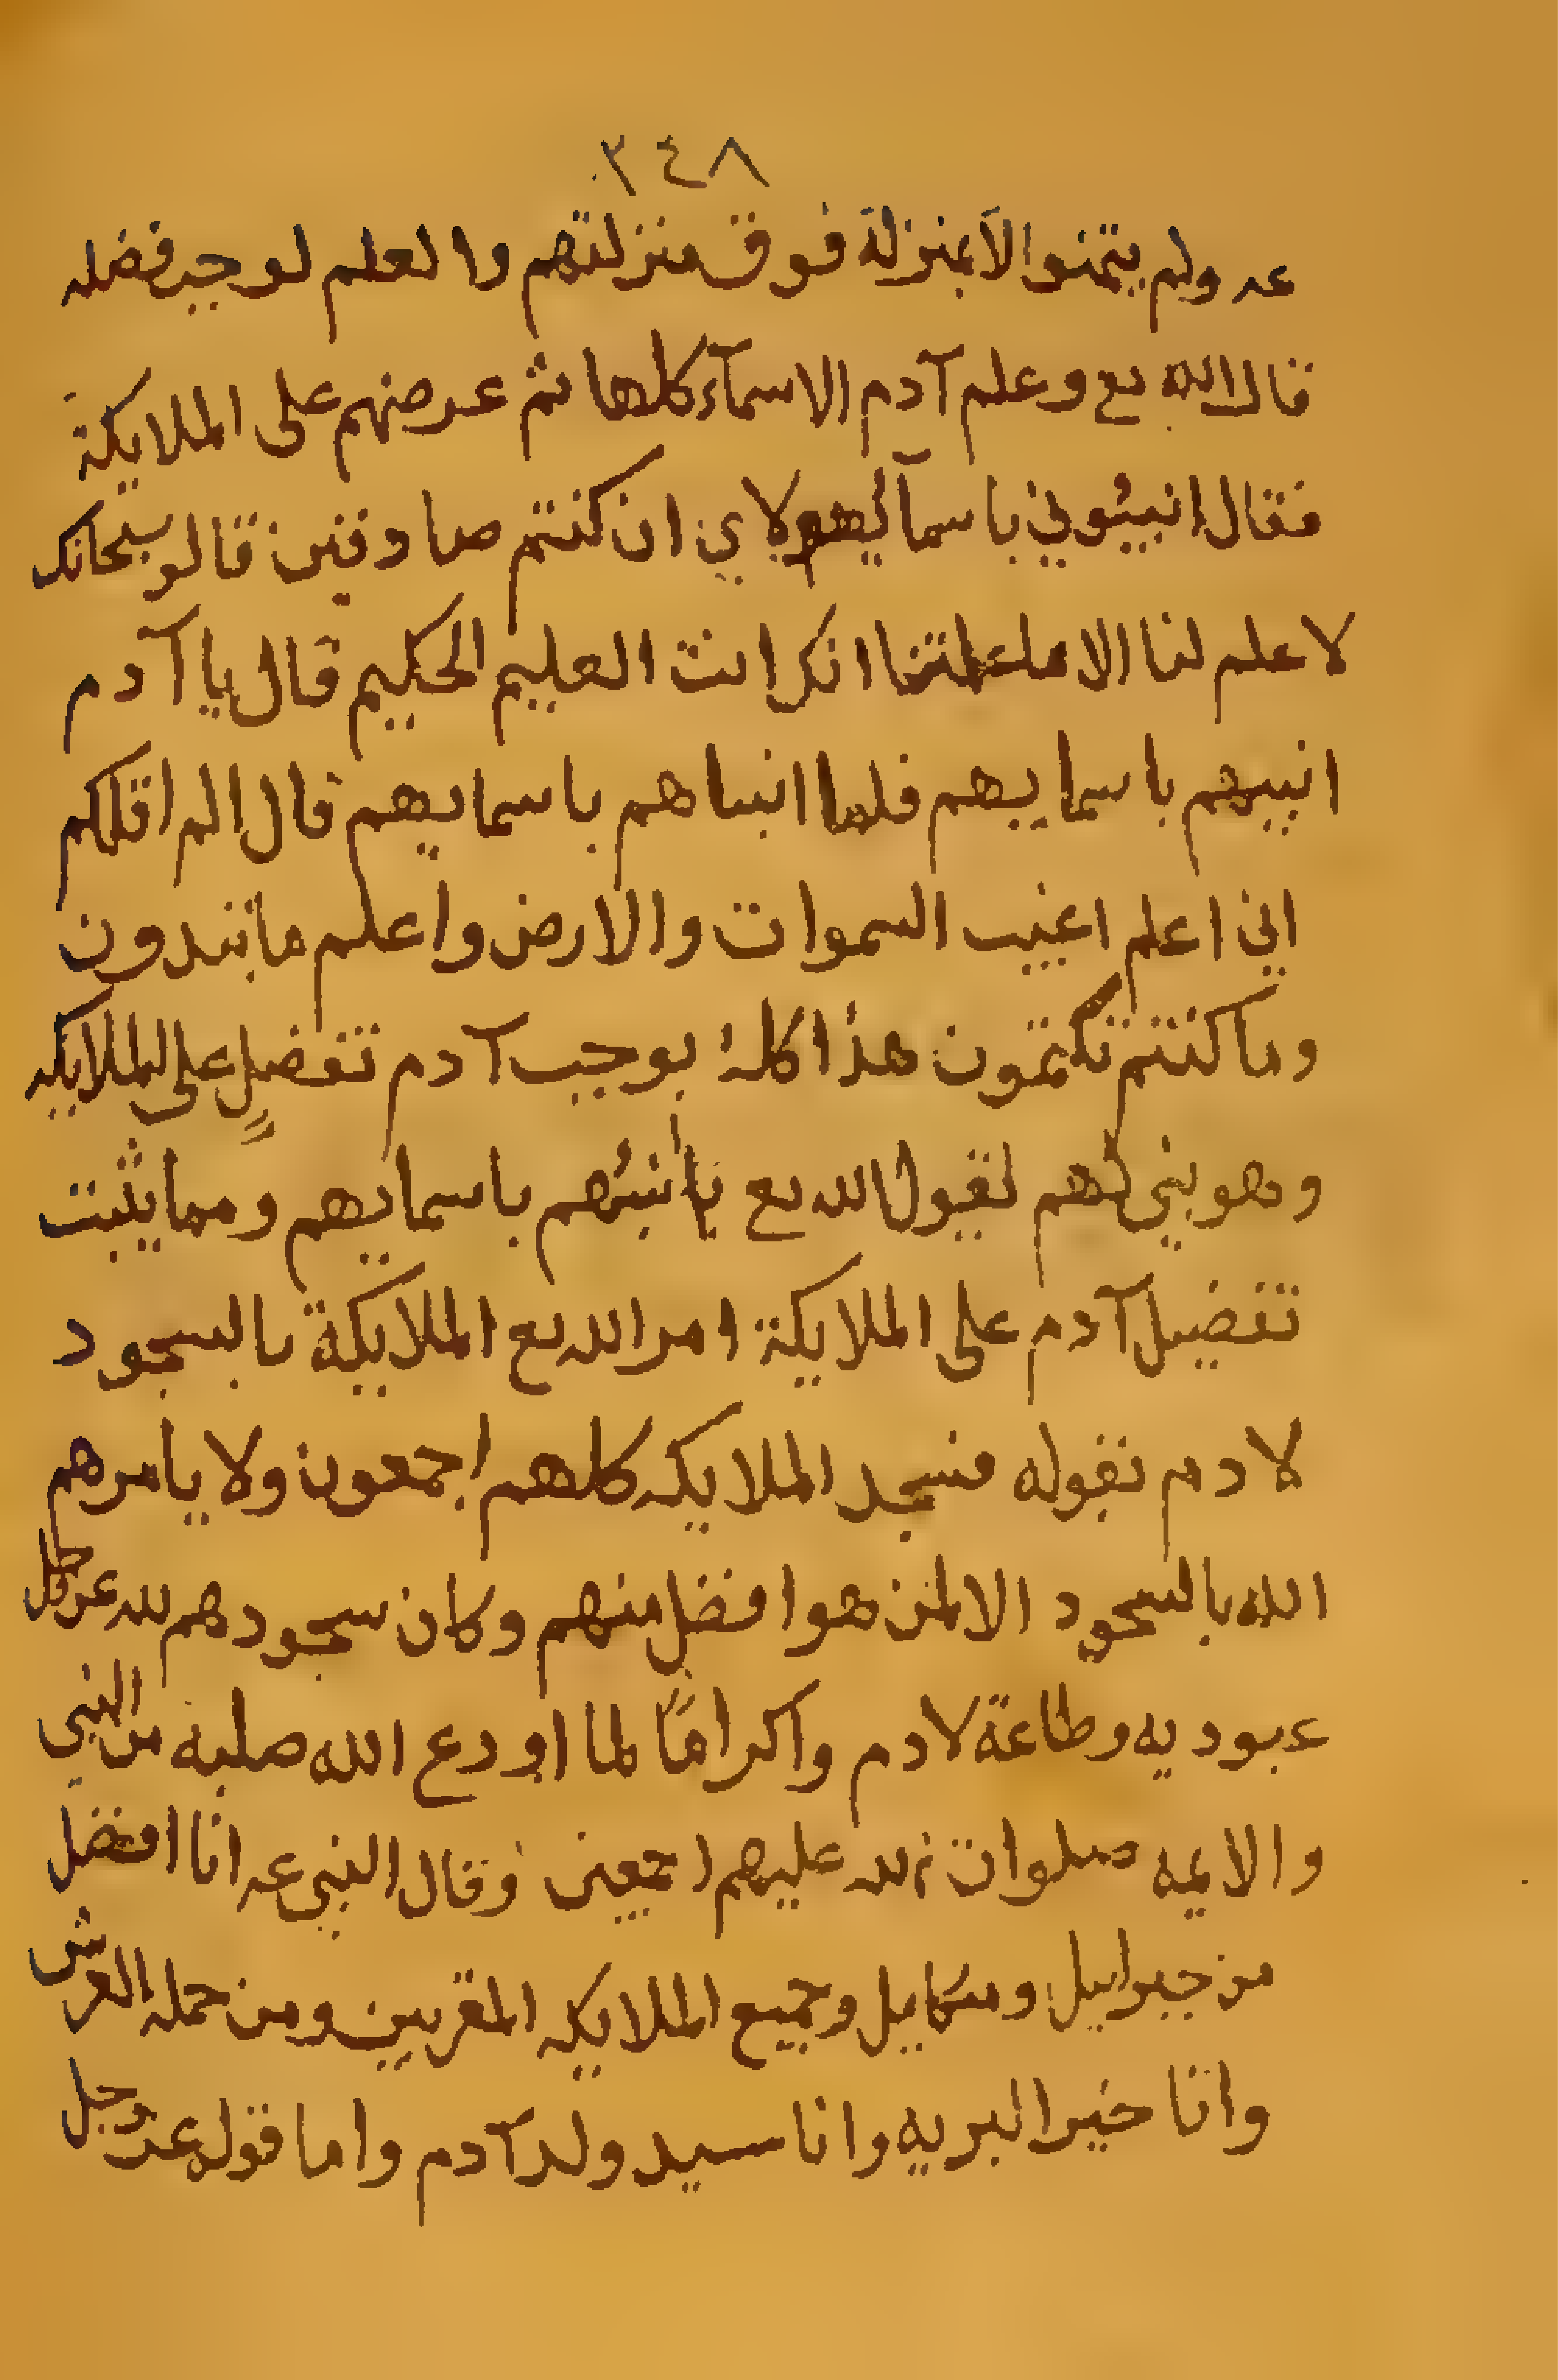 ٣٤٨
عه ولم يتمنوا الا بمنزلة فوق منزلتهم والعلم لوجب فضله
قال الله تع وعلم آدم الاسمآء كلها ثم عرضهم على الملايكة
فقال انبيئوني باسمآ لهولاي ان كنتم صادقين قالو سبحانك
لا علم لنا الا ما علمتنا انك انت العليم الحكيم قال يا آدم
انبيهم باسمايهم فلما انباهم باسمايهم قال الم اقلكم
اني اعلم اغيب السموات والارض واعلم ما تبدون
وما كنتم تكتمون هذا كله يوجب آدم تفضيل على الملايكه
وهو بنى لهم لقول الله تع يا انبئهم باسمايهم ومما يثبت
تفضيل آدم على الملايكة امر الله تع الملايكة بالسجود
لادم بقوله فسجد الملايكه كلهم اجمعون ولا يامرهم
الله بالسجود الا لمن هو افضل منهم وكان سجودهم لله عز وجل
عبوديه وطاعة لادم واكراماً لما اودع الله صلبه من النبي
والايمه صلوات الله عليهم اجمعين وقال النبي عه انا افضل
من جبراييل وميكاييل وجميع الملايكه المقربين ومن حمله العرش
وانا خير البريه وانا سيد ولد آدم واما قوله عز وجل